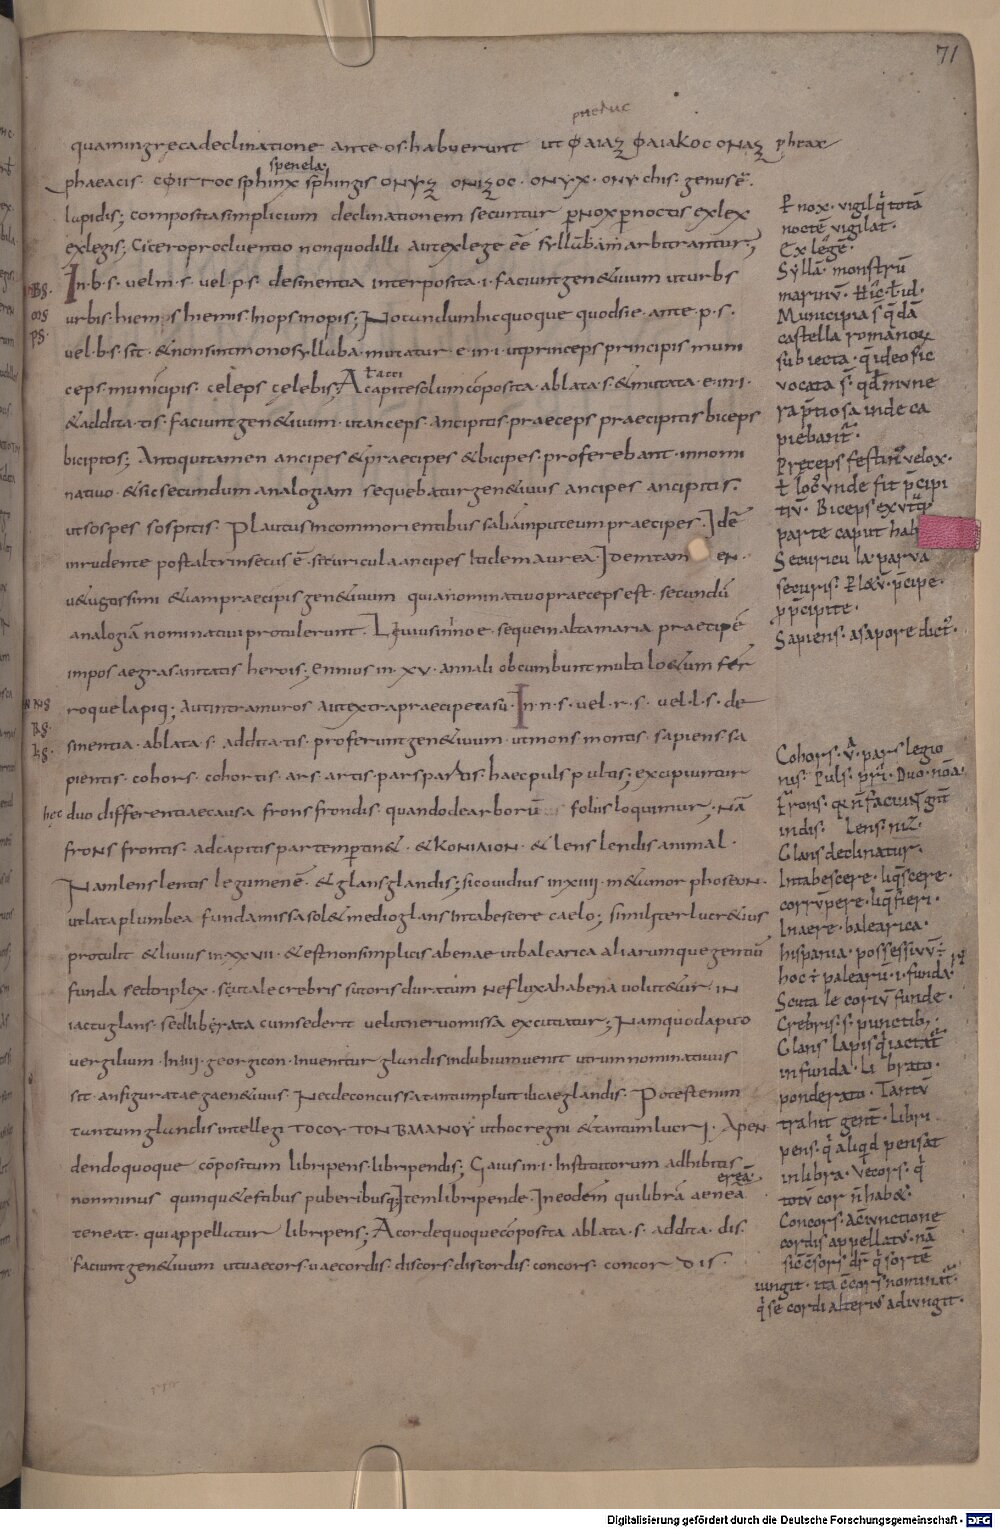 71
quam in greca declinatione ante os habuerunt ut ΦΑΙΑΞ ΦΑΙΑΚΟC ΟΝΑΞ pheax
spenela
phaeacis · CΦΙΓΓΟC sphinx sphingis ΟΝΥΞ ΟΝΙΞΟC · ΟΝΥΧ · ΟΝΥchis · genus ē
lapidis; composita simplicium declinationem secuntur p̱nox p̱noctis exlex
exlegis; Cicero pro cluentio non quod illi aut exlege eē syllaƀam arbitrantur;
In · b · s · uel m · s · uel · p · s · desinentia interposita · i · faciunt gen&iuum ut urbs
urbis · hiemps hiemis · inops inopis; Notandum hic quoque quod si e · ante · p · s ·
uel · b · s · sit · & non sint monosyllaba · mutatur · e · in · i · ut princeps principis muni
ceps municipis · celeps celebis; A capite solum cōposita · ablata · s · & mutata · e · in · i ·
& addita · tis · faciunt gen&iuum · ut anceps · ancipitis · praeceps praecipitis biceps
bicipitis; Antiqui tamen ancipes & praecipes & bicipes · proferebant · in nomi
natiuo · & sic secundum analogiam sequebatur gen&iuus ancipes ancipitis ·
ut sospes sospitis · Plautus in commorientibus saliā in puteum praecipes · Idē
in rudente post altrinsecus ē · securicula ancipes itidem aurea · Idem tamen
u&ustissimi &iam praecipis gen&iuum quia nominatiuo praeceps est · secundū
analogiā nominatiui protulerunt ·
impos aegra sanitatis herois; Ennius in · xv · annali obcumbunt multi l&um fer
roque lapiq; Aut intra muros aut extra praecipe casū · In n · s · uel · r · s · uel · l · s · de
sinentia · ablata · s · addita · tis · proferunt gen&iuum · ut mons montis · sapiens sa
pientis · cohors · cohortis · ars · artis · pars partis · haec puls pultis; excipiuntur
hęc duo differentiae causa frons frondis · quando de arborū foliis loquimur · Nā
frons frontis · ad capitis partem p̱tin& · & ΚΟΝΙΔΙΟΝ · & lens lendis animal ·
Nam lens lentis legumen ē · & glans glandis; sic ouidius in xiiii · m&amorphoseon ·
ut lata plumbea funda missa sol& medio glans intabescere caelo; similiter lucr&ius
protulit & liuius in · xxvii · & est non simplicis abenae ut balearica aliarumque gentiū
funda sed triplex · scutale crebris sutoris duratum ne fluxa habena uolu&ur · in
iactu glans · sed librata cum sederit uelut neruo missa excutiatur; Nam quod apuło
uergilium · in iiii · georgicon · inuenitur glandis in dubium uenit utrum nominatiuus
sit · an figuratae gen&iuus · Nec de concussa tantum pluit ilice glandis · Potest enim
tantum glandis intellegi ΤΟCΟΥ ΤΟΝ ΒΑΛΑΝΟΥ ut hoc regni & tantum lucri · A pen
dendo quoque cōpositum libripens · libripendis; Gaius in · i · institutorum adhibitis
non minus quinque testibus puberibusq; Item libripende · In eodem qui librā aenea
teneat · qui appellatur libripens; A corde quoque cōposita ablata · s · addita · dis ·
faciunt gen&iuum ut uaecors · uaecordis · discors · discordis · concors · concor dis ·
P̱nox · vigil q̄ totā
noctē vigilat ·
Ex legē ·
Syllā · monstrū
marinū ·
Municipia s̄ q̄dā
castella romanorum
subiecta · q̄ ideo sic
vocata s̄ · qđ mune
ra p̄tiosa inde ca
piebant ·
Pręceps festin velox ·
parte caput hab
Securicula parva
securis ·
p̄cipite ·
Sapiens · a sapore dict ·
Cohors · pars legio
nis · Puls ·
Frons ·
indis · Lens ·
Glans declinatur ·
Intabescere · liq̄scere ·
corrūpere · liq̄fieri ·
In aere · balearica ·
hispania · possessivū
Scuta le coriū funde ·
Crebris · s · punctib;
Glans lapis q̄ iactat
in funda · Li brato ·
ponderato · Tantū
trahit genit · Libri
pens · q̄ aliqđ pensat
in libra · Vecors · q̄
totū cor n̄ hab& ·
Concors · a ciunctione
cordis appellat · nā
sic cōsors dr q̄ sortē
iungit · ita cōcors nominat ·
q̄ se cordi alterius adiungit ·
Digitalisierung gefördert durch die Deutsche Forschungsgemeinschaft - DFG